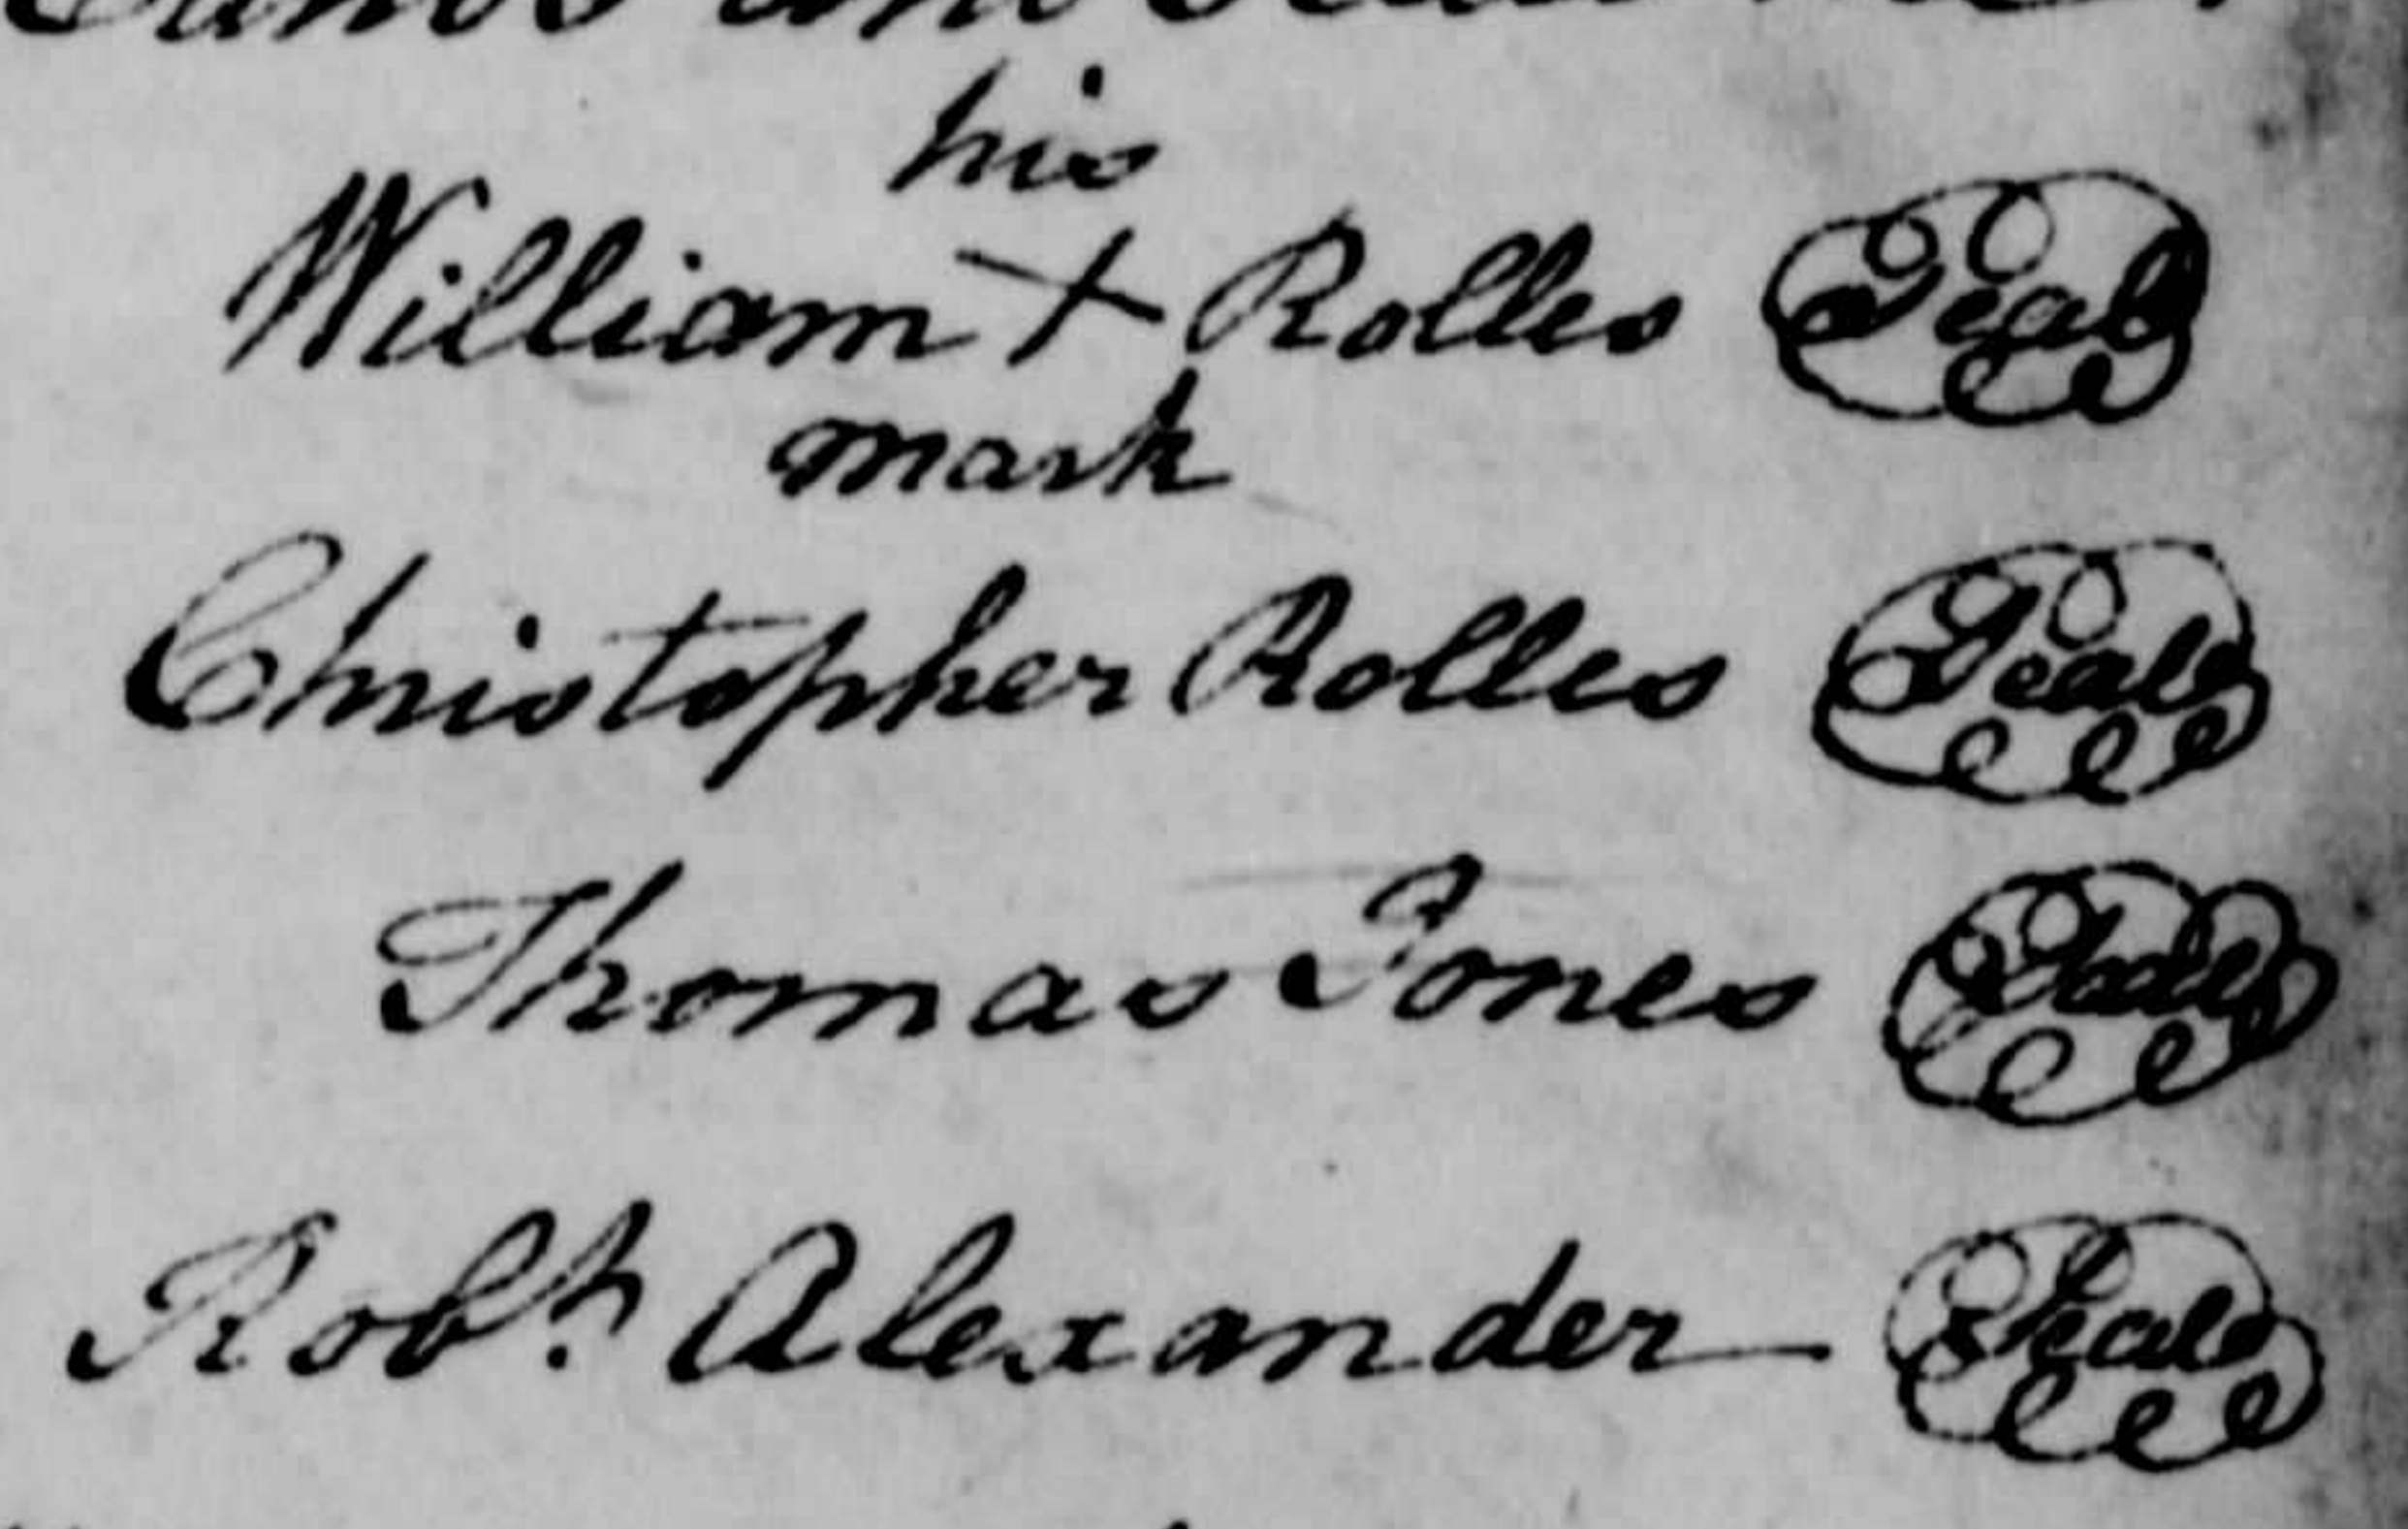 his
William + Rolles Seal
mark
Christopher Rolles Seal
Thomas Jones Seal
Robt. Alexander Seal